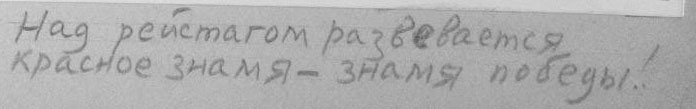 Над рейстагом развевается
красное знамя – знамя победы!.